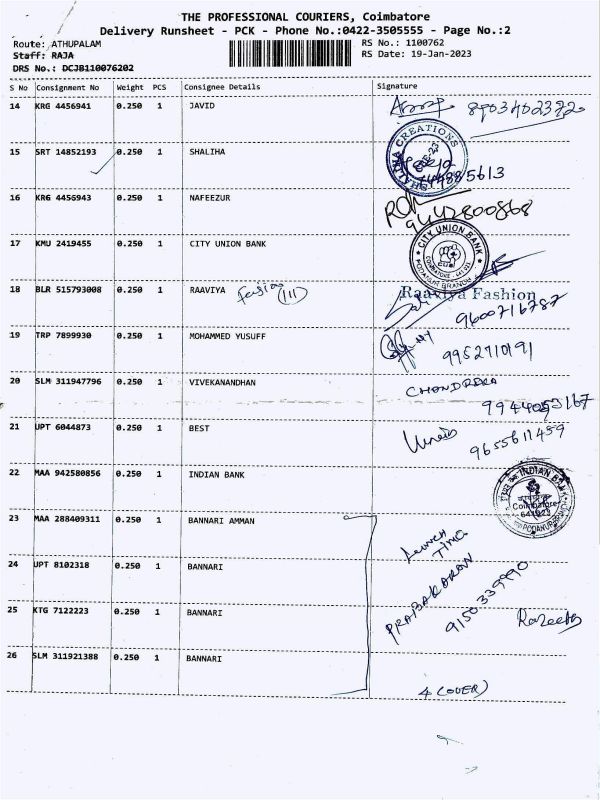 THE PROFESSIONAL COURIERS, Coimbatore
Delivery Runsheet - PCK - Phone No.:0422-3505555 - Page No.:2
Route: ATHUPALAM RS No.: 1100762
Staff: RAJA RS Date: 19-Jan-2023
DRS No.: DCJB110076202
S No Consignment No Weight PCS Consignee Details Signature
14 KRG 4456941 0.250 1 JAVID
15 SRT 14852193 0.250 1 SHALIHA
SHALIHA CREATIONS
16 KRG 4456943 0.250 1 NAFEEZUR
9442800868
17 KMU 2419455 0.250 1 CITY UNION BANK
CITY UNION BANK
PODANUR BRANCH
18 BLR 515793008 0.250 1 RAAVIYA (111) Raaviya Fashion
9600716787
19 TRP 7899930 0.250 1 MOHAMMED YUSUFF
9952710191
20 SLM 311947796 0.250 1 VIVEKANANDHAN
21 UPT 6044873 0.250 1 BEST
9655611459
22 MAA 942580856 0.250 1 INDIAN BANK
INDIAN BANK
Coimbatore
641023
PODANUR
23 MAA 288409311 0.250 1 BANNARI AMMAN
24 UPT 8102318 0.250 1 BANNARI
PRABAKARAN
9150339990
25 KTG 7122223 0.250 1 BANNARI
26 SLM 311921388 0.250 1 BANNARI
4 (OVER)